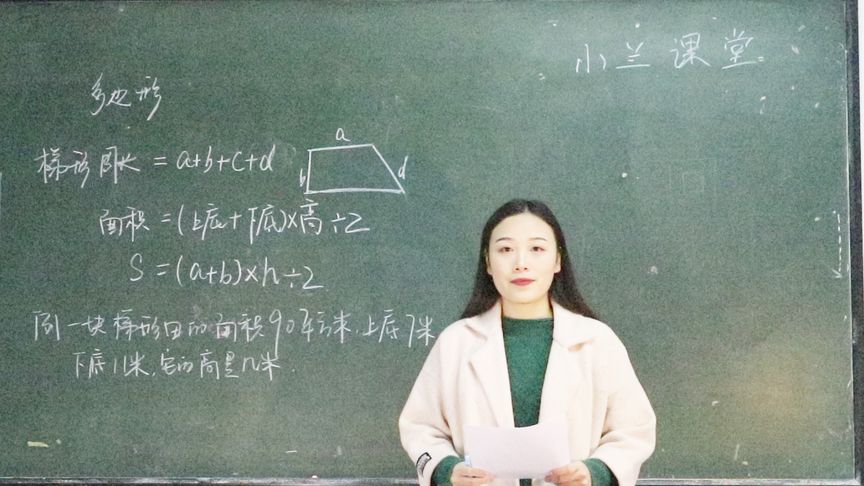 小兰课堂
多边形
梯形周长=a+b+c+d
a
b
d
面积=(上底+下底)×高÷2
S=(a+b)×h÷2
例一块梯形田的面积90平方米,上底7米
下底11米,它的高是几米.